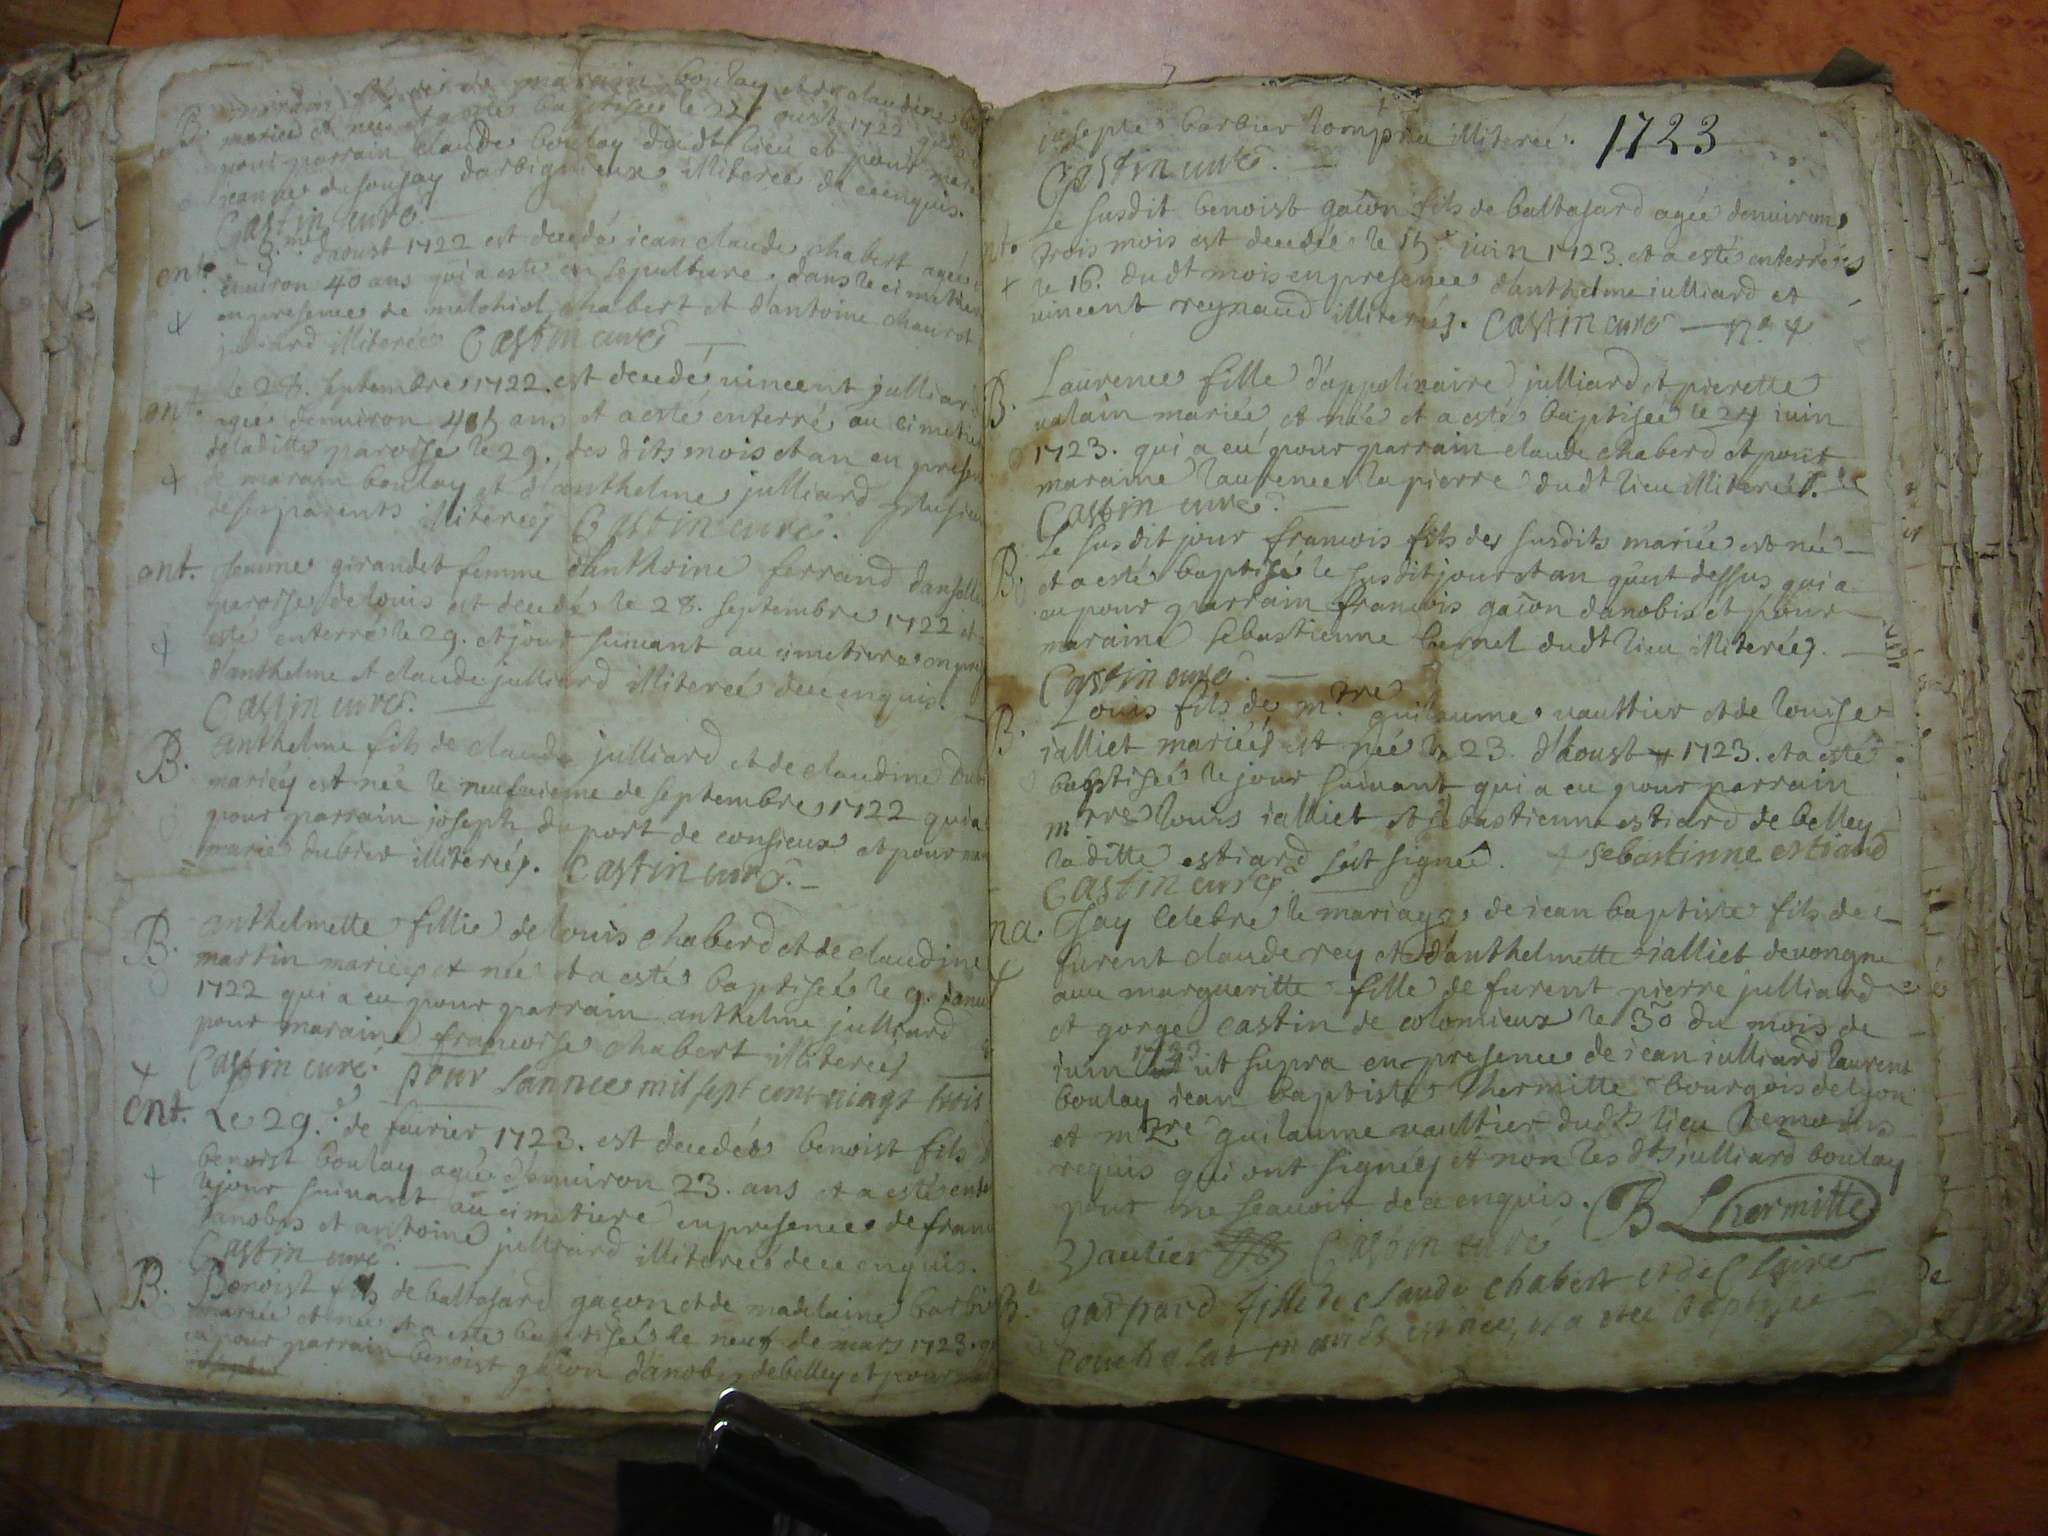 B. marain boulay et de claudine
mariéd et née et a esté baptisée le 22 aust 1722
pour parrain claude boulay dudt lieu et pour mar
jeanne dusousay darbignieux illiterés de ce enquis.
Castin curé
ent. daoust 1722 est decedé jean claude chabert agée
enuiron 40 ans qui a esté en sepulture dans le cimetier
en presence de melchiol chabert et d'antoine chaurot
julliard illiterés Castin curé
ent. le 28. septembre 1722. est decedé vincent julliar
agée denuiron 45 ans et a esté enterré au cimetie
de laditte paroisse le 29. des dits mois et an en presen
de marain boulay et d'anthelme julliard plusieu
de ses parents illiterés Castin curé.
ent. Jeanne girandet femme d'anthoine ferrand danselli
paroisse de louis est decedé le 28. septembre 1722 et
esté enterré le 29. et jour suiuant au cimetiere en pres
d'anthelme et claude julliard illiterés de ce enquis.
Castin curé.
B. anthelme fils de claude julliard et de claudine dub
mariéz est née le neufuieme de septembre 1722 qui a
pour parrain joseph duport de consieux et pour mar
marie dubier illiterés. Castin curé.
B. anthelmette fillie de louis chaberd et de claudine
martin mariés et née et a esté baptisée le 9. januie
1722 qui a eu pour parrain anthelme julliard
pour maraine francoise chabert illiterés
Castin curé. pour lannee mil sept cent vingt trois
ent. Le 29.e de feurier 1723. est decedée benoist fils
benoist boulay agée d'enuiron 23. ans et a esté ente
le jour suiuant au cimetiere en presence de fran
danobis et antoine julliard illiterés de ce enquis.
Castin curé.
B. Benoist fils de baltasard gacon et de madelaine barbi
mariée et née et a esté baptisée le neuf de mars 1723. q
eu pour parrain benoist gacon danobis de belley et pour
1723
josepte barbier illiterée.
Castin curé.
ent. Le susdit benoist gacon fils de baltasard agée denuiron
trois mois est decedée le 15e iuin 1723. et a esté enterrée
le 16. dudt mois en presence d'anthelme iulliard et
vincent reynaud illiterés. Castin curé
B. Laurence fille d'appolinaire julliard et pierette
valain mariée et née et a esté baptisée le 24 iuin
1723. qui a eu pour parrain claude chaberd et pour
maraine laurence lapierre dudt lieu illiterés.
Castin curé.
B. Le susdit jour francois fils des susdits mariée est née
et a esté baptisé le susdit jour et an que dessus qui a
eu pour parrain francois gacon danobis et pour
maraine sebastienne bernel dudt lieu illiterés.
Castin curé.
B. Louis fils de m.tre guilaume vauttier et de louise
ialliet mariéés est née le 23. d'houst 1723. et a esté
baptisée le jour suiuant qui a eu pour parrain
mtre louis ialliet et sebastienne estiard de belley
la ditte estiard soit signée. sebastinne estiard
Castin curé
ma. Jay celebré le mariage de iean baptiste fils de
furent claude rey et d'anthelmette ialliet de vongne
auec margueritte fille de furent pierre julliard
et gorge castin de colomieux le 30 du mois de
iuin 1723 ut supra en presence de iean iulliard laurent
boulay iean baptiste lhermitte bourgois de lyon
et mtre guilaume vaultier dudt lieu temoins
requis qui ont signés et non les dts julliard boulay
pour ne scauoir de ce enquis. B Lhermitte
Vautier Castin curé
B. gaspard fille de claude chabert et de Claire
couchelat mariés est née, et a etee baptisee